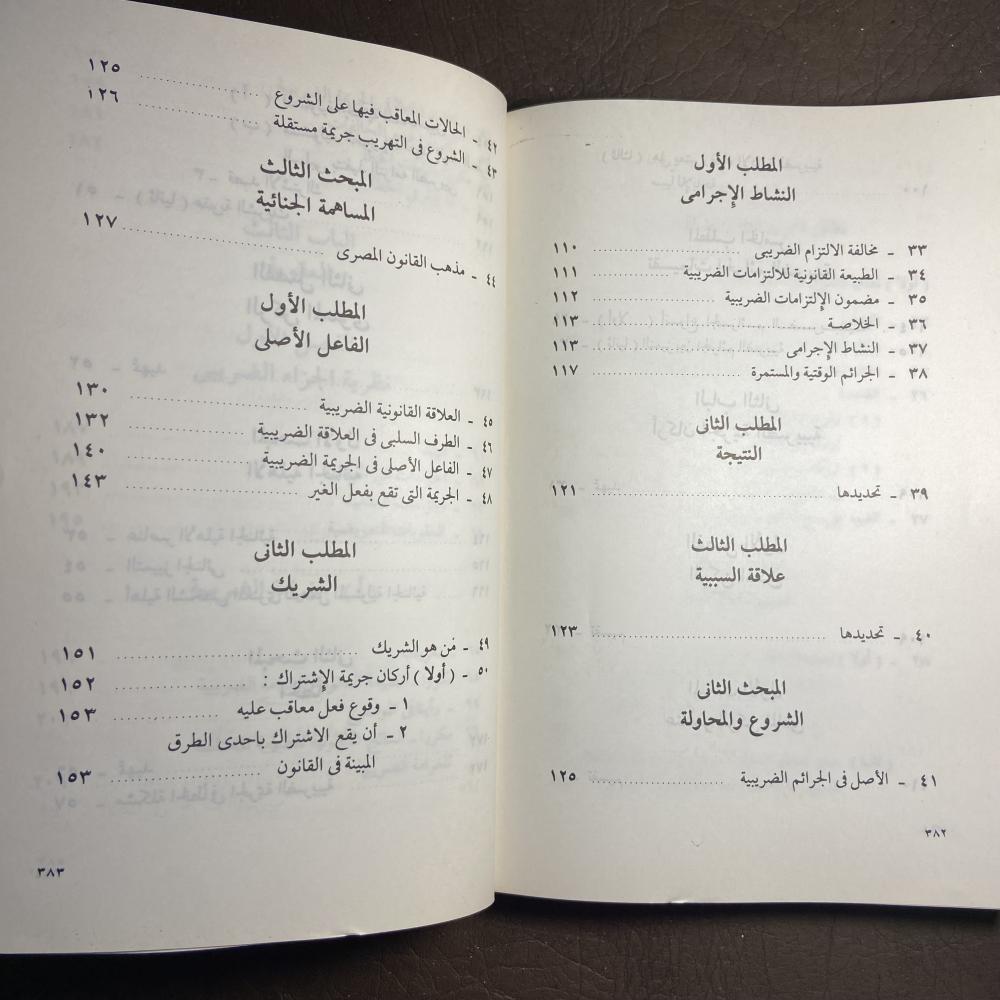 المطلب الأول
النشاط الإجرامى
٣٣ - مخالفة الالتزام الضريبى ........ ١١٠
٣٤ - الطبيعة القانونية للالتزامات الضريبية ........ ١١١
٣٥ - مضمون الإلتزامات الضريبية ........ ١١٢
٣٦ - الخلاصة ........ ١١٣
٣٧ - النشاط الإجرامى ........ ١١٣
٣٨ - الجرائم الوقتية والمستمرة ........ ١١٧
المطلب الثانى
النتيجة
٣٩ - تحديدها ........ ١٢١
المطلب الثالث
علاقة السببية
٤٠ - تحديدها ........ ١٢٣
المبحث الثانى
الشروع والمحاولة
٤١ - الأصل فى الجرائم الضريبية ........ ١٢٥
٣٨٢
٤٢ - الحالات المعاقب فيها على الشروع ........ ١٢٥
٤٣ - الشروع فى التهريب جريمة مستقلة ........ ١٢٦
المبحث الثالث
المساهمة الجنائية
٤٤ - مذهب القانون المصرى ........ ١٢٧
المطلب الأول
الفاعل الأصلى
٤٥ - العلاقة القانونية الضريبية ........ ١٣٠
٤٦ - الطرف السلبى فى العلاقة الضريبية ........ ١٣٢
٤٧ - الفاعل الأصلى فى الجريمة الضريبية ........ ١٤٠
٤٨ - الجريمة التى تقع بفعل الغير ........ ١٤٣
المطلب الثانى
الشريك
٤٩ - مَن هو الشريك ........ ١٥١
٥٠ - ( أولا ) أركان جريمة الإشتراك : ........ ١٥٢
١ - وقوع فعل معاقب عليه ........ ١٥٣
٢ - أن يقع الاشتراك باحدى الطرق
المبينة فى القانون ........ ١٥٣
٣٨٣